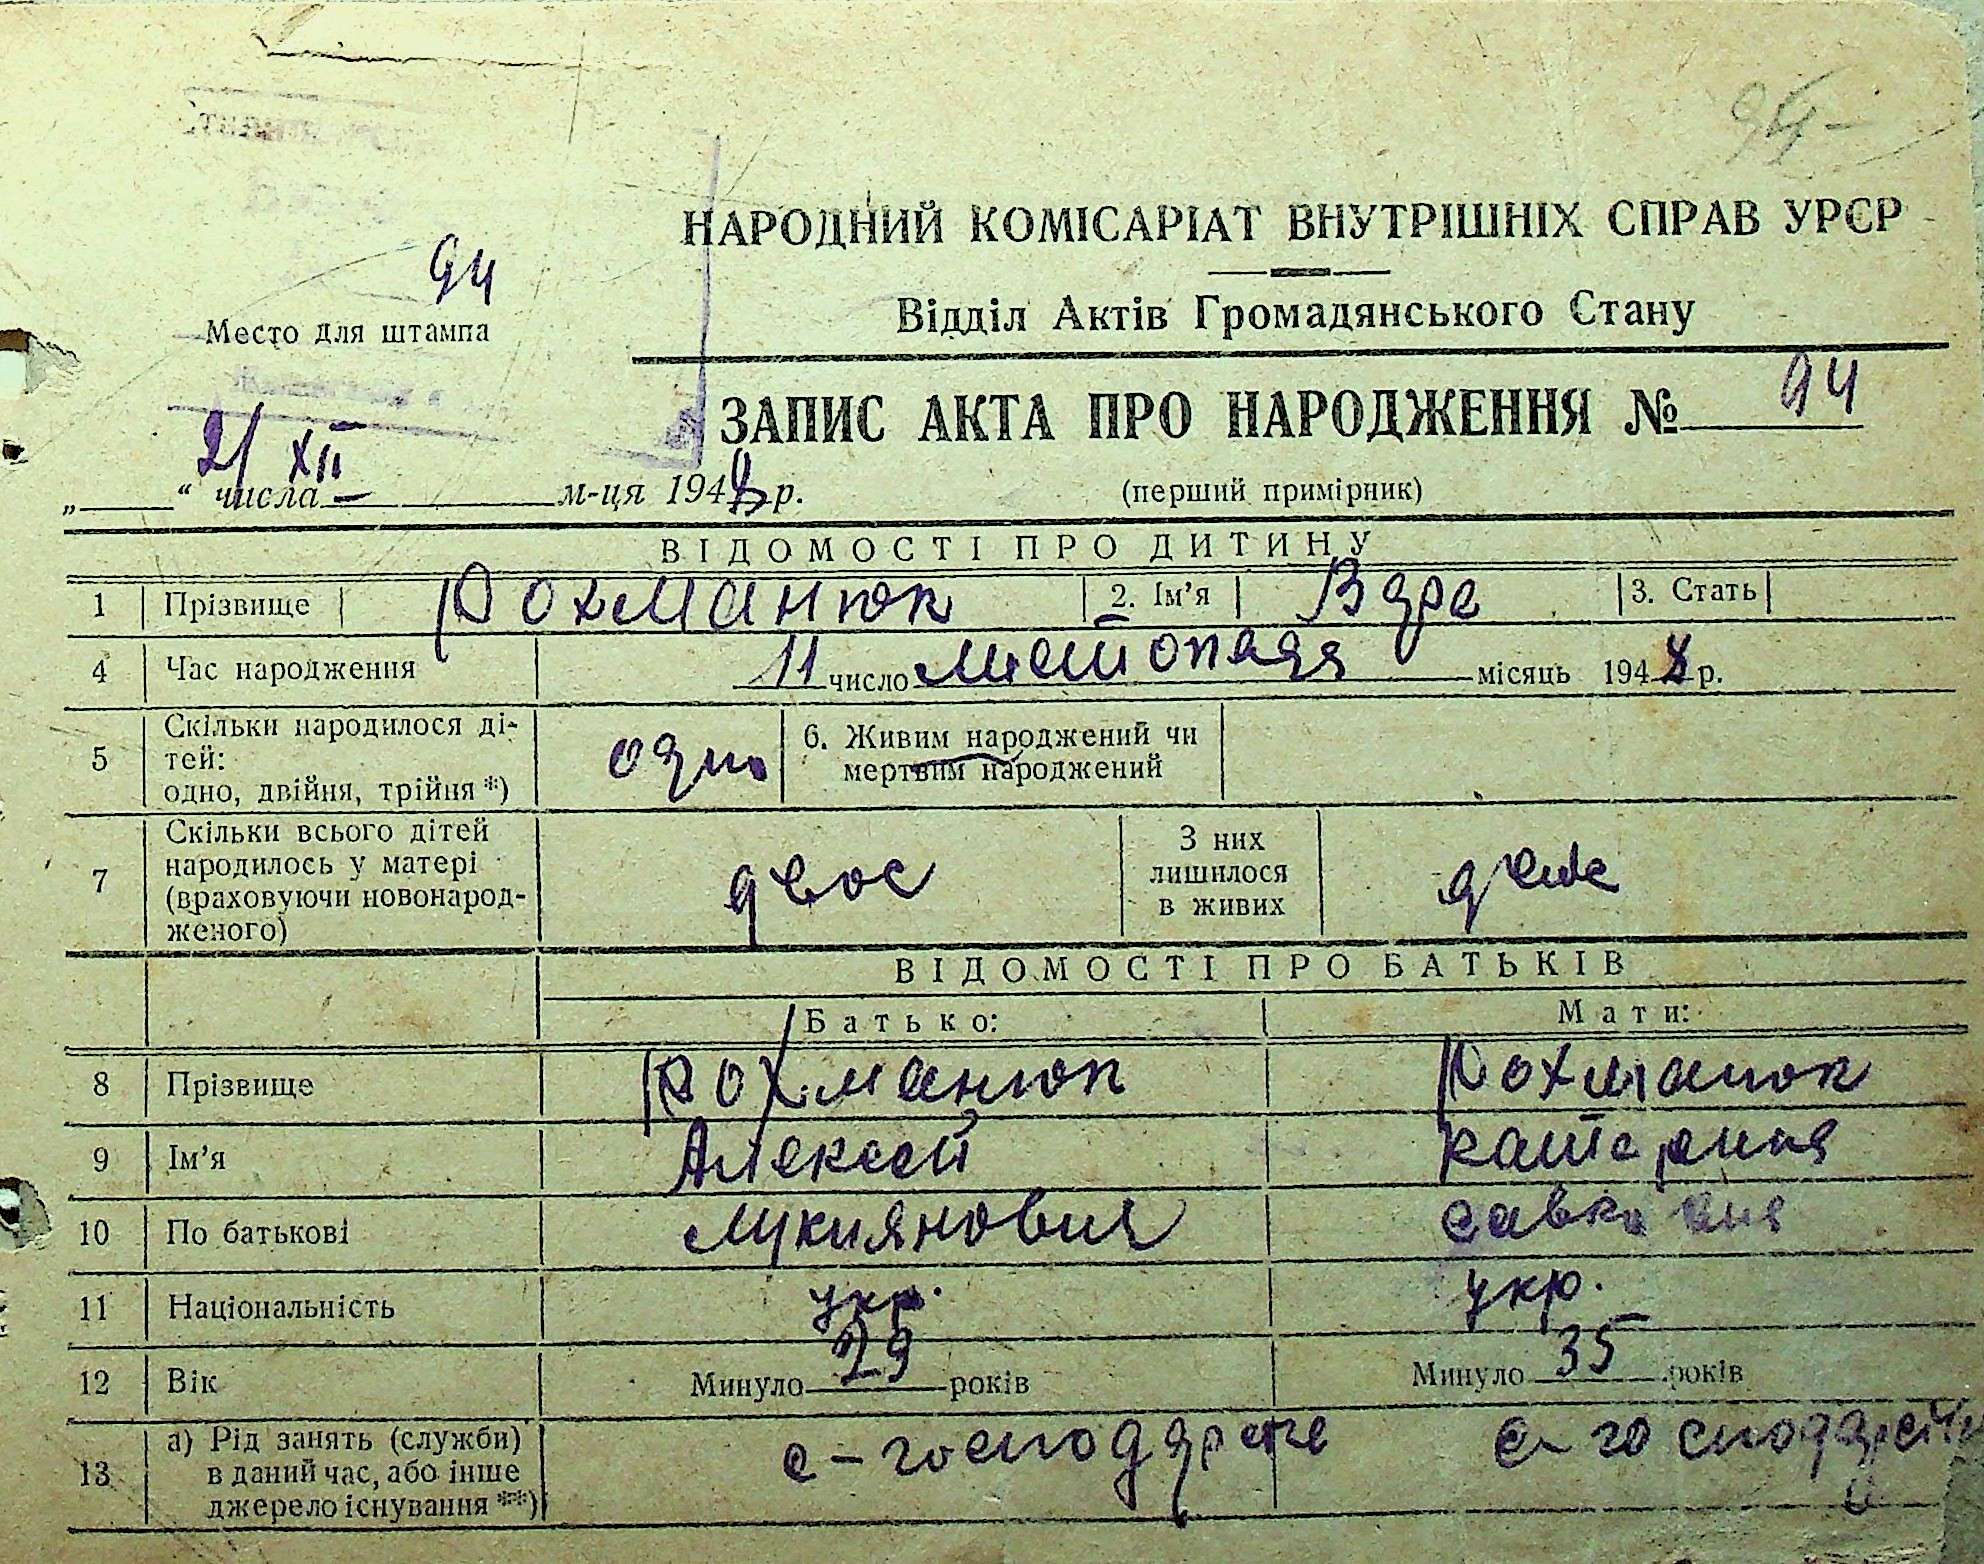 94
НАРОДНИЙ КОМІСАРІАТ ВНУТРІШНІХ СПРАВ УРСР
94
Відділ Актів Громадянського Стану
Место для штампа
ЗАПИС АКТА ПРО НАРОДЖЕННЯ № 94
21 XII
„ “ числа м-ця 194 р.
(перший примірник)
ВІДОМОСТІ ПРО ДИТИНУ
1 Прізвище Рохманюк 2. Ім’я 3. Стать
4 Час народження 11 число листопада місяць 194 р.
5 Скільки народилося ді-
тей:
одно, двійня, трійня *)
одно
6. Живим народжений чи
мертвим народжений
7 Скільки всього дітей
народилось у матері
(враховуючи новонарод-
женого)
двоє
З них
лишилося
в живих
двоє
ВІДОМОСТІ ПРО БАТЬКІВ
Батько: Мати:
8 Прізвище Рохманюк Рохманюк
9 Ім’я Алексей Катерина
10 По батькові Лукиянович
11 Національність укр. укр.
12 Вік Минуло 29 років Минуло 35 років
13 а) Рід занять (служби)
в даний час, або інше
джерело існування **)
с-господарстве